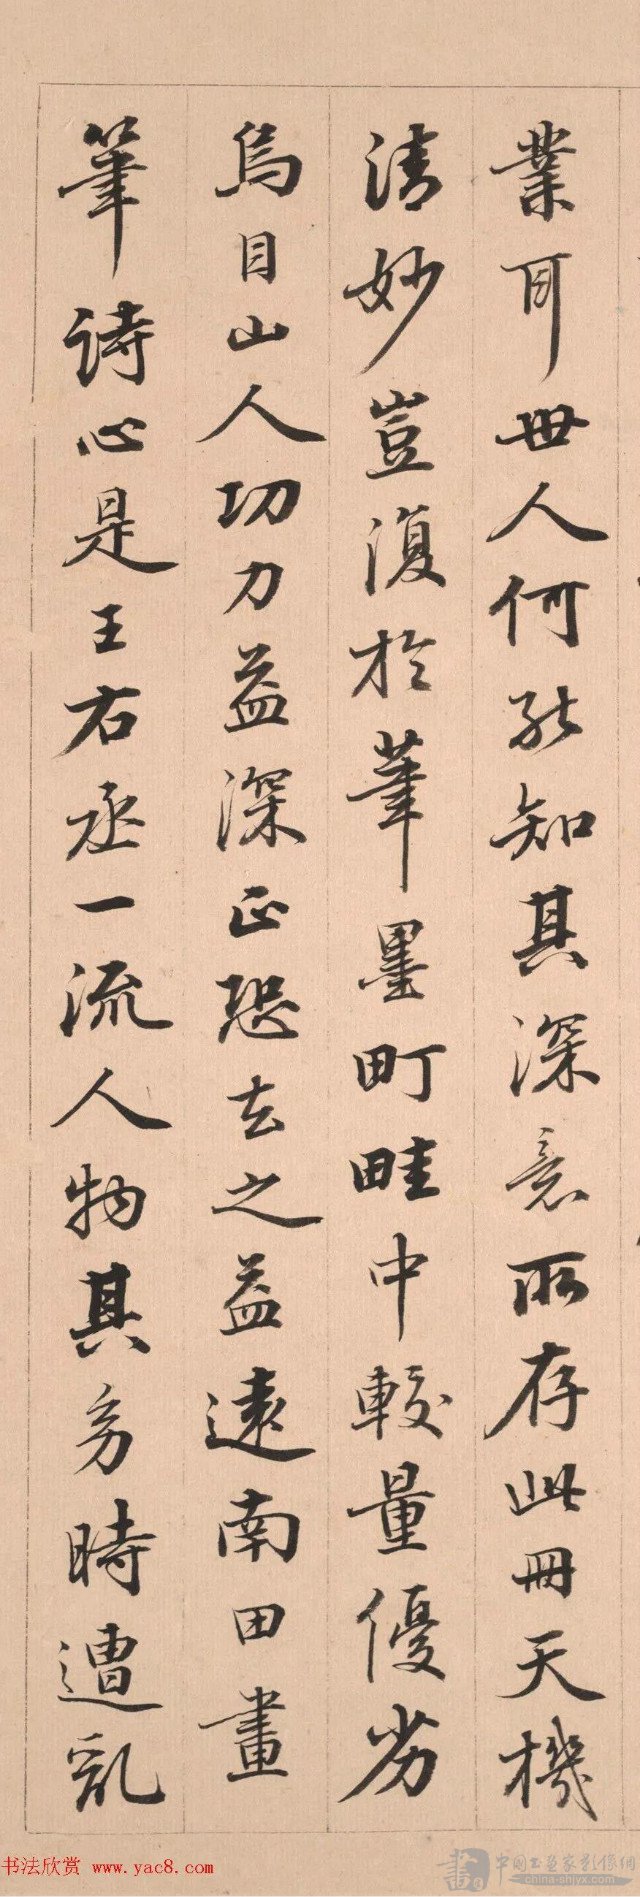 業耳世人何能知其深意所存此冊天機
清妙豈復於筆墨町畦中較量優劣
烏目山人功力益深正恐去之益遠南田畫
筆詩心是王右丞一流人物其多時遭亂
书法欣赏 www.yac8.com
中国书画家影像网
china-shjyx.com